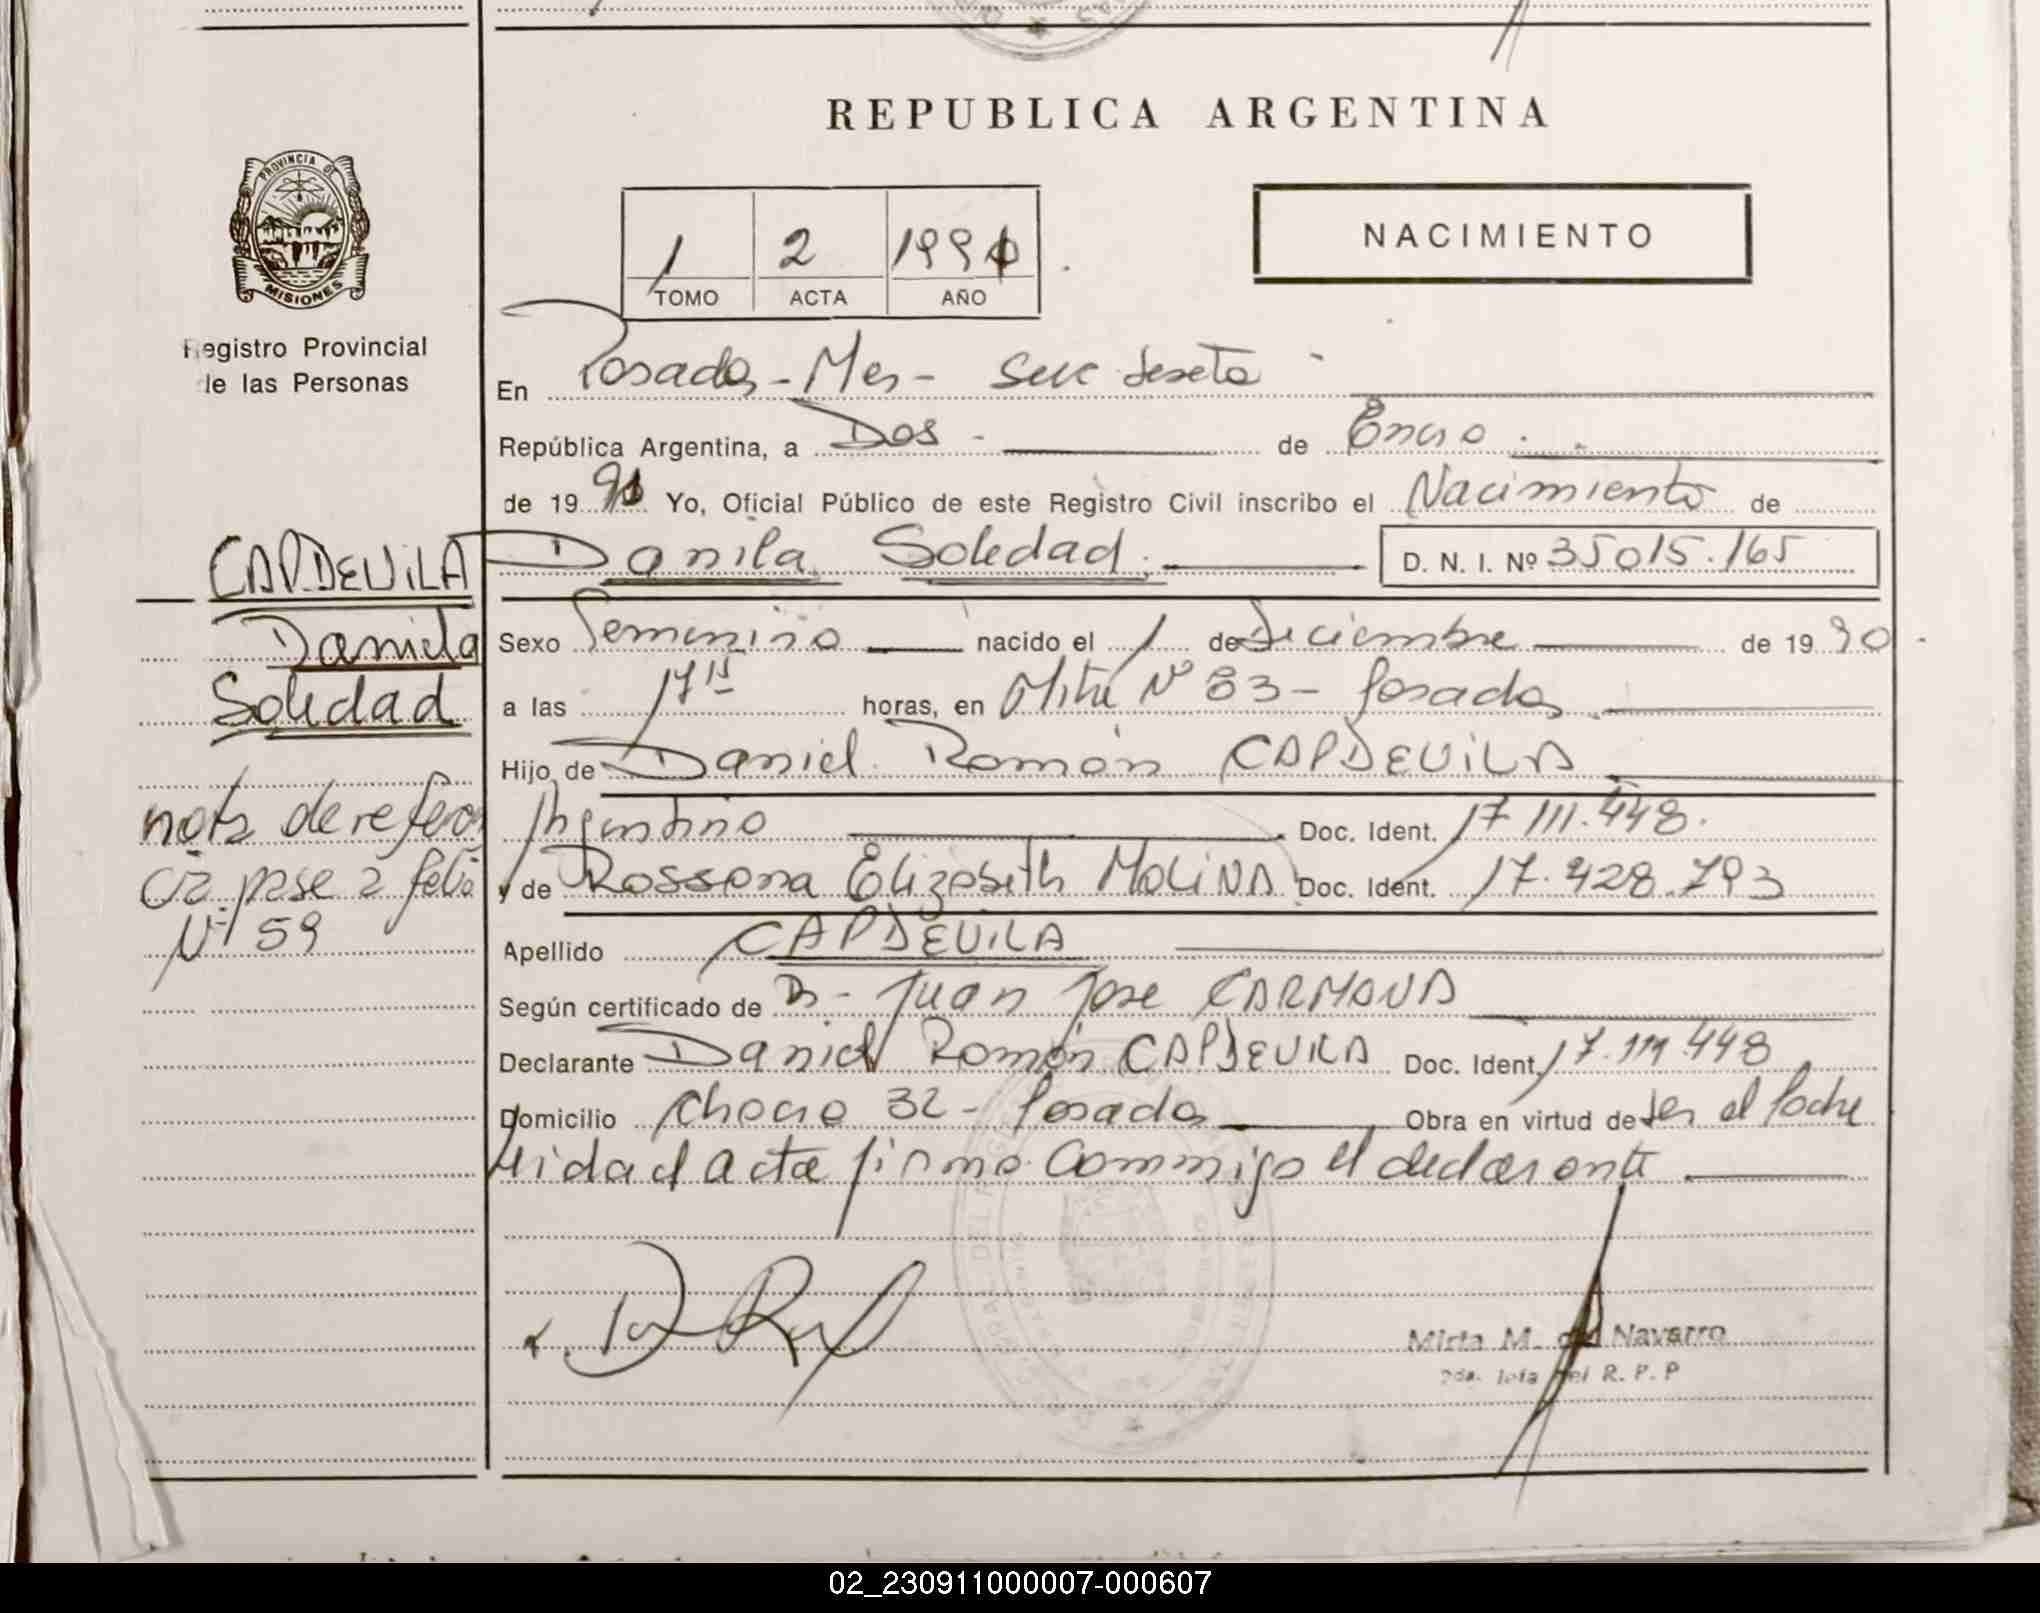 REPUBLICA ARGENTINA
PROVINCIA DE
MISIONES
Registro Provincial
de las Personas
NACIMIENTO
1 2 1991
TOMO ACTA AÑO
En Posadas - Mes - Secc Sexta
República Argentina, a Dos - de Enero
de 1991 Yo, Oficial Público de este Registro Civil inscribo el Nacimiento de
CAPDEVILA
Danila Soledad D. N. I. Nº 35015.165
Daniela
Soledad
Sexo Femenino nacido el 1 de Diciembre de 1990
a las 17 15 horas, en Mitre Nº 83 - Posadas
Hijo de Daniel Ramón CAPDEVILA
Argentino Doc. Ident. 17 111.448.
y de Rossana Elizabeth MOLINA Doc. Ident. 17.428.793
nota de referen
cia pase a folio
Nº 59
Apellido CAPDEVILA
Según certificado de Dr - Juan Jose CARMONA
Declarante Daniel Ramón CAPDEVILA Doc. Ident. 17.111.448
Domicilio Chaco 32 - Posadas Obra en virtud de ser el Padre
Leida el acta firma Commigo el declarante
Mirta M. de Navarro
2da. Jefa del R. P. P
02_230911000007-000607